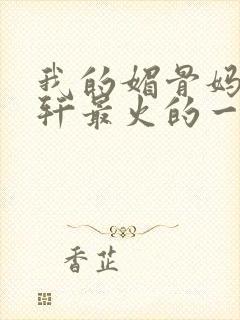 我的媚骨妈
轩最火的一
香芷